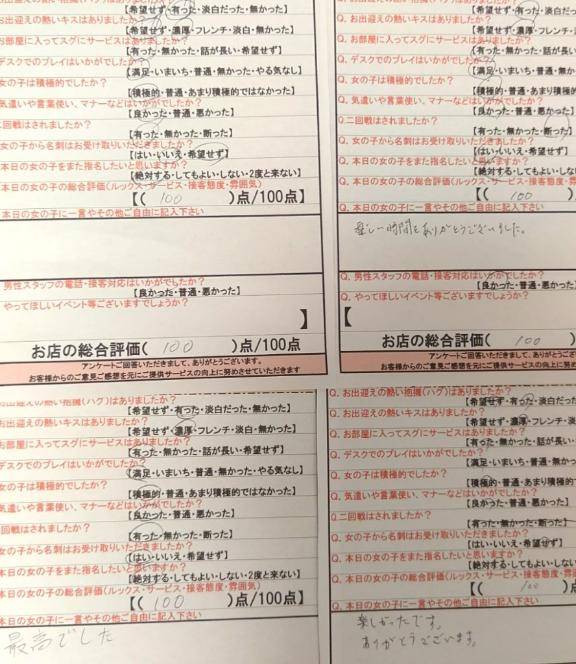 お出迎えの熱い抱擁(ハグ)はありましたか?
【希望せず・有った・淡白だった・無かった】
お出迎えの熱いキスはありましたか?
【希望せず・濃厚・フレンチ・淡白・無かった】
お部屋に入ってスグにサービスはありましたか?
【有った・無かった・話が長い・希望せず】
デスクでのプレイはいかがでしたか?
【満足・いまいち・普通・無かった・やる気なし】
女の子は積極的でしたか?
【積極的・普通・あまり積極的ではなかった】
気遣いや言葉使い、マナーなどはいかがでしたか?
【良かった・普通・悪かった】
二回戦はされましたか?
【有った・無かった・断った】
女の子から名刺はお受け取りいただきましたか?
【はい・いいえ・希望せず】
本日の女の子をまた指名したいと思いますか?
【絶対する・してもよい・しない・2度と来ない】
本日の女の子の総合評価(ルックス・サービス・接客態度・雰囲気)
【( 100 )点/100点】
本日の女の子に一言やその他ご自由に記入下さい
男性スタッフの電話・接客対応はいかがでしたか?
【良かった・普通・悪かった】
やってほしいイベント等ございますでしょうか?
】
お店の総合評価( 100 )点/100点
アンケートご回答いただきまして、ありがとうございます。
お客様からのご意見ご感想を元にご提供サービスの向上に努めさせていただきます
【希望せず・有った・淡白だった
Q. お出迎えの熱いキスはありましたか?
【希望せず・濃厚・フレンチ・淡
Q. お部屋に入ってスグにサービスはありましたか?
【有った・無かった・話が長い
Q. デスクでのプレイはいかがでしたか?
【満足・いまいち・普通・無かった
Q. 女の子は積極的でしたか?
【積極的・普通・あまり積極的で
Q. 気遣いや言葉使い、マナーなどはいかがでしたか?
【良かった・普通・悪かった】
Q.二回戦はされましたか?
【有った・無かった・断った】
Q. 女の子から名刺はお受け取りいただきましたか?
【はい・いいえ・希望せず】
Q. 本日の女の子をまた指名したいと思いますか?
【絶対する・してもよい・しない・2
Q. 本日の女の子の総合評価(ルックス・サービス・接客態度・
【( 100 )点/
Q. 本日の女の子に一言やその他ご自由に記入下さい
楽しい時間をありがとうございました。
Q. 男性スタッフの電話・接客対応はいかがでしたか?
【良かった・普通・悪か
Q. やってほしいイベント等ございますでしょうか?
【
お店の総合評価( 100 )
アンケートご回答いただきまして、ありがとうござい
お客様からのご意見ご感想を元にご提供サービスの向上に努め
お出迎えの熱い抱擁(ハグ)はありましたか?
【希望せず・有った・淡白だった・無かった】
お出迎えの熱いキスはありましたか?
【希望せず・濃厚・フレンチ・淡白・無かった】
お部屋に入ってスグにサービスはありましたか?
【有った・無かった・話が長い・希望せず】
デスクでのプレイはいかがでしたか?
【満足・いまいち・普通・無かった・やる気なし】
女の子は積極的でしたか?
【積極的・普通・あまり積極的ではなかった】
気遣いや言葉使い、マナーなどはいかがでしたか?
【良かった・普通・悪かった】
回戦はされましたか?
【有った・無かった・断った】
女の子から名刺はお受け取りいただきましたか?
【はい・いいえ・希望せず】
本日の女の子をまた指名したいと思いますか?
【絶対する・してもよい・しない・2度と来ない】
本日の女の子の総合評価(ルックス・サービス・接客態度・雰囲気)
【( 100 )点/100点】
本日の女の子に一言やその他ご自由に記入下さい
最高でした
Q. お出迎えの熱い抱擁(ハグ)はありましたか?
【希望せず・有った・淡白だった
Q. お出迎えの熱いキスはありましたか?
【希望せず・濃厚・フレンチ・淡
Q. お部屋に入ってスグにサービスはありましたか?
【有った・無かった・話が長い・
Q. デスクでのプレイはいかがでしたか?
【満足・いまいち・普通・無かっ
Q. 女の子は積極的でしたか?
【積極的・普通・あまり積極的
Q. 気遣いや言葉使い、マナーなどはいかがでしたか?
【良かった・普通・悪かった】
Q.二回戦はされましたか?
【有った・無かった・断った】
Q. 女の子から名刺はお受け取りいただきましたか?
【はい・いいえ・希望せず】
Q. 本日の女の子をまた指名したいと思いますか?
【絶対する・してもよい・しない・
Q. 本日の女の子の総合評価(ルックス・サービス・接客態度・雰
【( 100 )点/
Q. 本日の女の子に一言やその他ご自由に記入下さい
楽しかったです。
ありがとうございます。